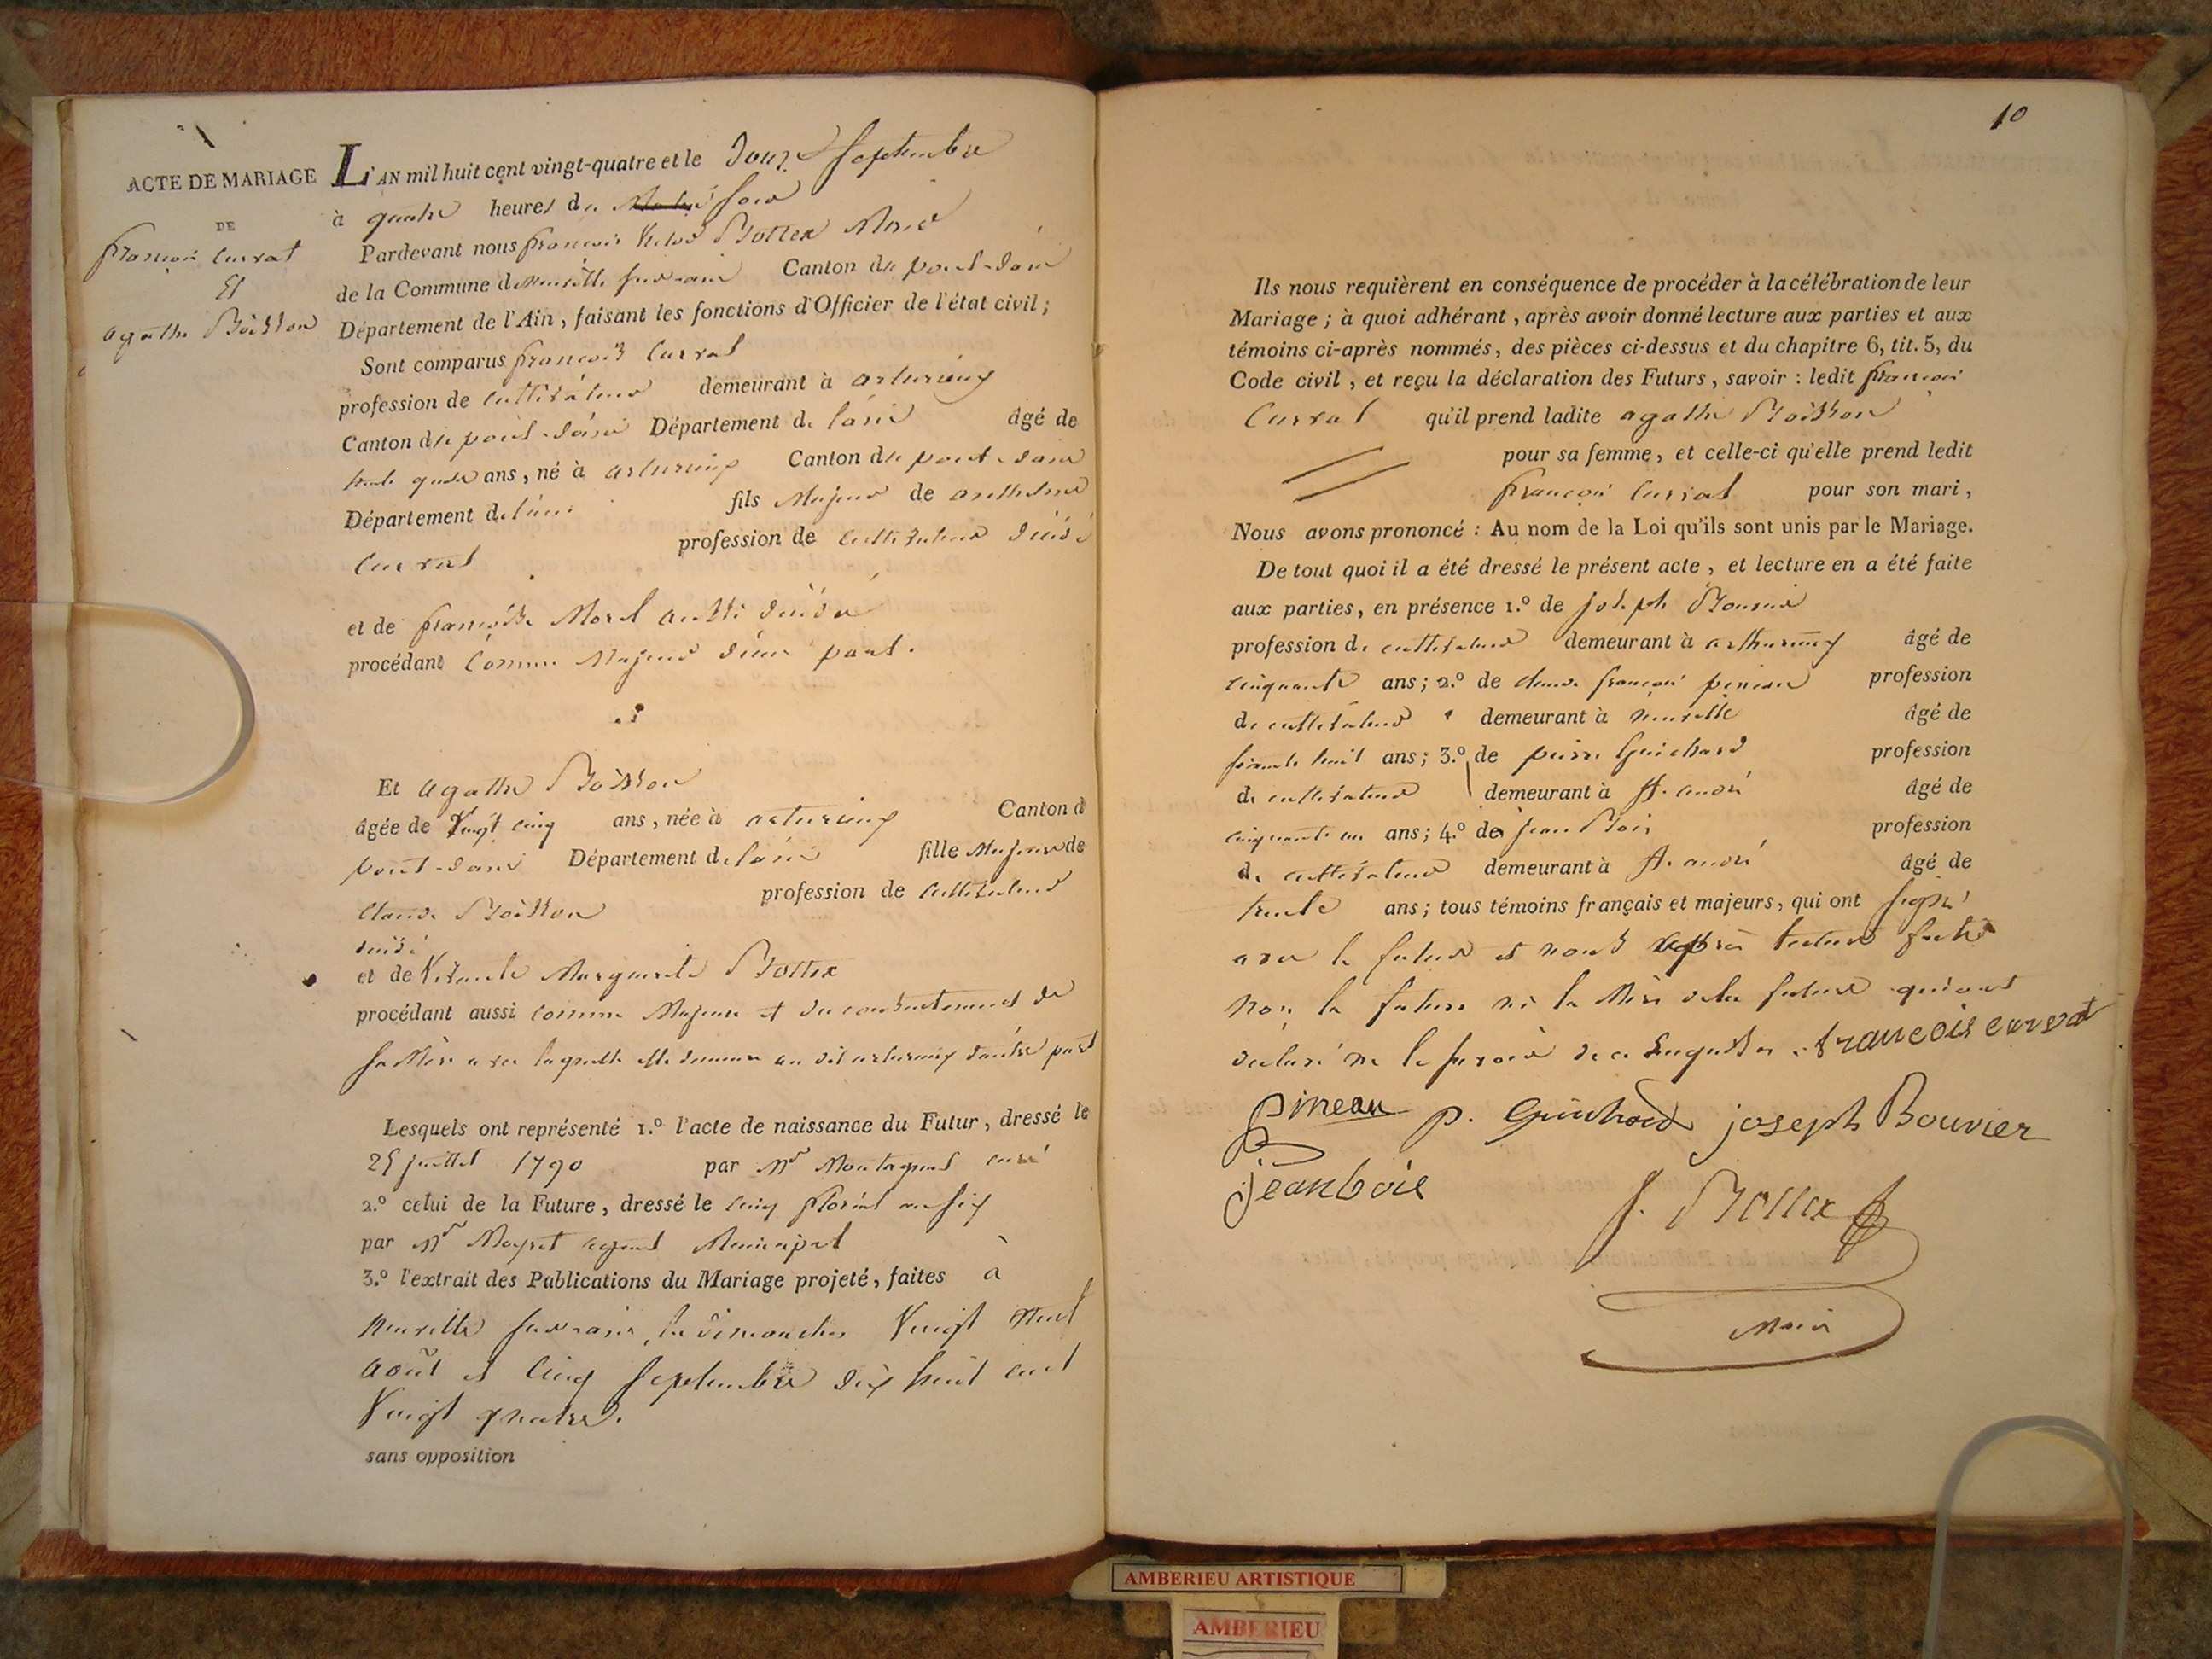 ACTE DE MARIAGE
DE
françois Currat
Et
agathe Boisson
L'AN mil huit cent vingt-quatre et le Douze Septembre
à quatre heures du soir
Pardevant nous françois Bottex Maire
de la Commune de neuville sur ain Canton du pont-dain
Département de l'Ain, faisant les fonctions d'Officier de l'état civil;
Sont comparus françois Currat
profession de cultivateur demeurant à arturieux
Canton du pont-dain Département de lain âgé de
trente quatre ans, né à arturieux Canton du pont-dain
Département de lain fils Majeur de anthelme
Currat profession de cultivateur décédé
et de françoise Morel aussi décédé
procédant comme Majeur d'une part.
Et agathe Boisson
âgée de Vingt cinq ans, née à arturieux Canton d
pont-dain Département de lain fille Majeure de
Claude Boisson profession de cultivateur
décédé
et de Marguerite Bottex
procédant aussi comme Majeure et du consentement de
sa Mère avec laquelle elle demeure au dit arturieux d'autre part
Lesquels ont représenté 1.º l'acte de naissance du Futur, dressé le
25 juillet 1790 par Mr Montagnat curé
2.º celui de la Future, dressé le cinq floréal an six
par Mr agent Municipal
3.º l'extrait des Publications du Mariage projeté, faites à
neuville sur ain, les dimanches Vingt neuf
août et cinq Septembre dix huit cent
Vingt quatre.
sans opposition
10
Ils nous requièrent en conséquence de procéder à la célébration de leur
Mariage; à quoi adhérant, après avoir donné lecture aux parties et aux
témoins ci-après nommés, des pièces ci-dessus et du chapitre 6, tit. 5, du
Code civil, et reçu la déclaration des Futurs, savoir: ledit françois
Currat qu'il prend ladite agathe Boisson
pour sa femme, et celle-ci qu'elle prend ledit
françois Currat pour son mari,
Nous avons prononcé: Au nom de la Loi qu'ils sont unis par le Mariage.
De tout quoi il a été dressé le présent acte, et lecture en a été faite
aux parties, en présence 1.º de joseph Bouvier
profession de cultivateur demeurant à arthurieux âgé de
cinquante ans; 2.º de claude françois pineau profession
de cultivateur demeurant à neuville âgé de
huit ans; 3.º de pierre Guichard profession
de cultivateur demeurant à St. andré âgé de
cinquante un ans; 4.º de jean Bois profession
de cultivateur demeurant à St. andré âgé de
trente ans; tous témoins français et majeurs, qui ont signé
avec le futur et nous après lecture faite
non la future ni la Mère de la future qui ont
déclaré ne le savoir de ce enquises. francois currat
pineau p. Guichard joseph Bouvier
jean bois
f. Bottex
Maire
AMBERIEU ARTISTIQUE
AMBERIEU